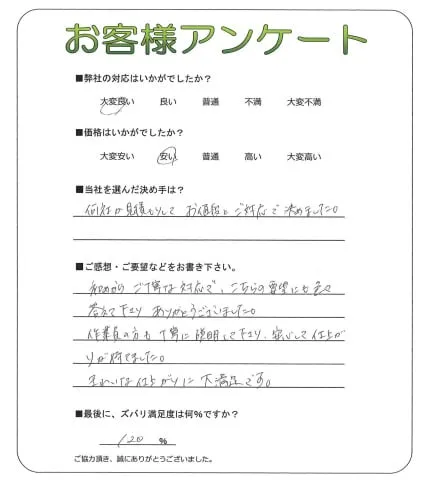 お客様アンケート
■弊社の対応はいかがでしたか?
大変良い 良い 普通 不満 大変不満
■価格はいかがでしたか?
大変安い 安い 普通 高い 大変高い
■当社を選んだ決め手は?
何社か見積もりして お値段と ご対応で 決めました。
■ご感想・ご要望などをお書き下さい。
初めから ご丁寧な対応で、こちらの要望にも色々
答えて下さり ありがとうございました。
作業員の方も 丁寧に 説明して下さり、安心して仕上が
りが待てました。
きれいな仕上がりに 大満足です。
■最後に、ズバリ満足度は何%ですか?
120 %
ご協力頂き、誠にありがとうございました。